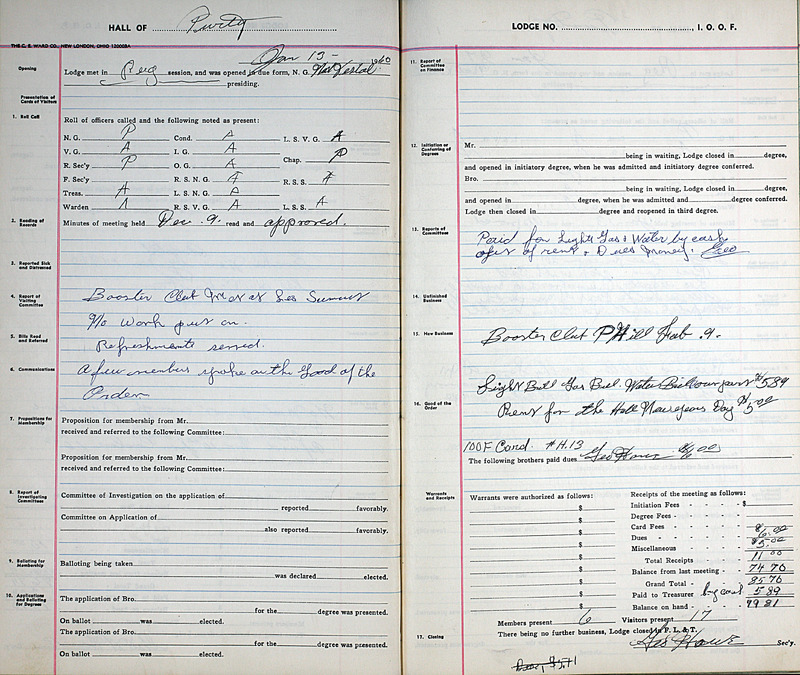 HALL OF Purity
THE C. E. WARD CO., NEW LONDON, OHIO 12000BA
Jan 13 - 1960
Opening
Lodge met in Reg session, and was opened in due form, N. G. Nat Vestal
presiding.
Presentation of Cards of Visitors
1. Roll Call
Roll of officers called and the following noted as present:
N. G. P Cond. A L. S. V. G. A
V. G. A I. G. A
R. Sec'y P O. G. A Chap. P
F. Sec'y R. S. N. G. R. S. S.
Treas. A L. S. N. G.
Warden A R. S. V. G. A L. S. S. A
2. Reading of Records
Minutes of meeting held Dec. 9. read and approved.
3. Reported Sick and Distressed
4. Report of Visiting Committee
Booster Club met at
No work put on.
5. Bills Read and Referred
Refreshments served.
6. Communications
A few members spoke on the Good of the
Order
7. Propositions for Membership
Proposition for membership from Mr.
received and referred to the following Committee:
Proposition for membership from Mr.
received and referred to the following Committee:
8. Report of Investigating Committees
Committee of Investigation on the application of
reported favorably.
Committee on Application of
also reported favorably.
9. Balloting for Membership
Balloting being taken
was declared elected.
10. Applications and Balloting for Degrees
The application of Bro.
for the degree was presented.
On ballot was elected.
The application of Bro.
for the degree was presented.
On ballot was elected.
LODGE NO. I. O. O. F.
11. Report of Committee on Finance
12. Initiation or Conferring of Degrees
Mr.
being in waiting, Lodge closed in degree,
and opened in initiatory degree, when he was admitted and initiatory degree conferred.
Bro.
being in waiting, Lodge closed in degree,
and opened in degree, when he was admitted and degree conferred.
Lodge then closed in degree and reopened in third degree.
13. Reports of Committees
Paid for Lights Gas & Water by cash
of rent & Dues money. Geo
14. Unfinished Business
15. New Business
Booster Club P Hill Feb. 9.
Light Bill Gas Bill Water Bill $5.89
16. Good of the Order
Rent for the Hall New Years Day $5.00
IOOF Card. #H.13
The following brothers paid dues Geo Howe $6.00
Warrants and Receipts
Warrants were authorized as follows: Receipts of the meeting as follows:
$ Initiation Fees - - - $
$ Degree Fees
$ Card Fees
$ Dues $6.00
$ Miscellaneous $5.00
$ Total Receipts 11 00
$ Balance from last meeting 74 76
$ Grand Total 85 76
$ Paid to Treasurer by cash 5 89
$ Balance on hand 79 81
Members present 6 Visitors present 17
17. Closing
There being no further business, Lodge closed in F. L. & T.
Geo Howe Sec'y.